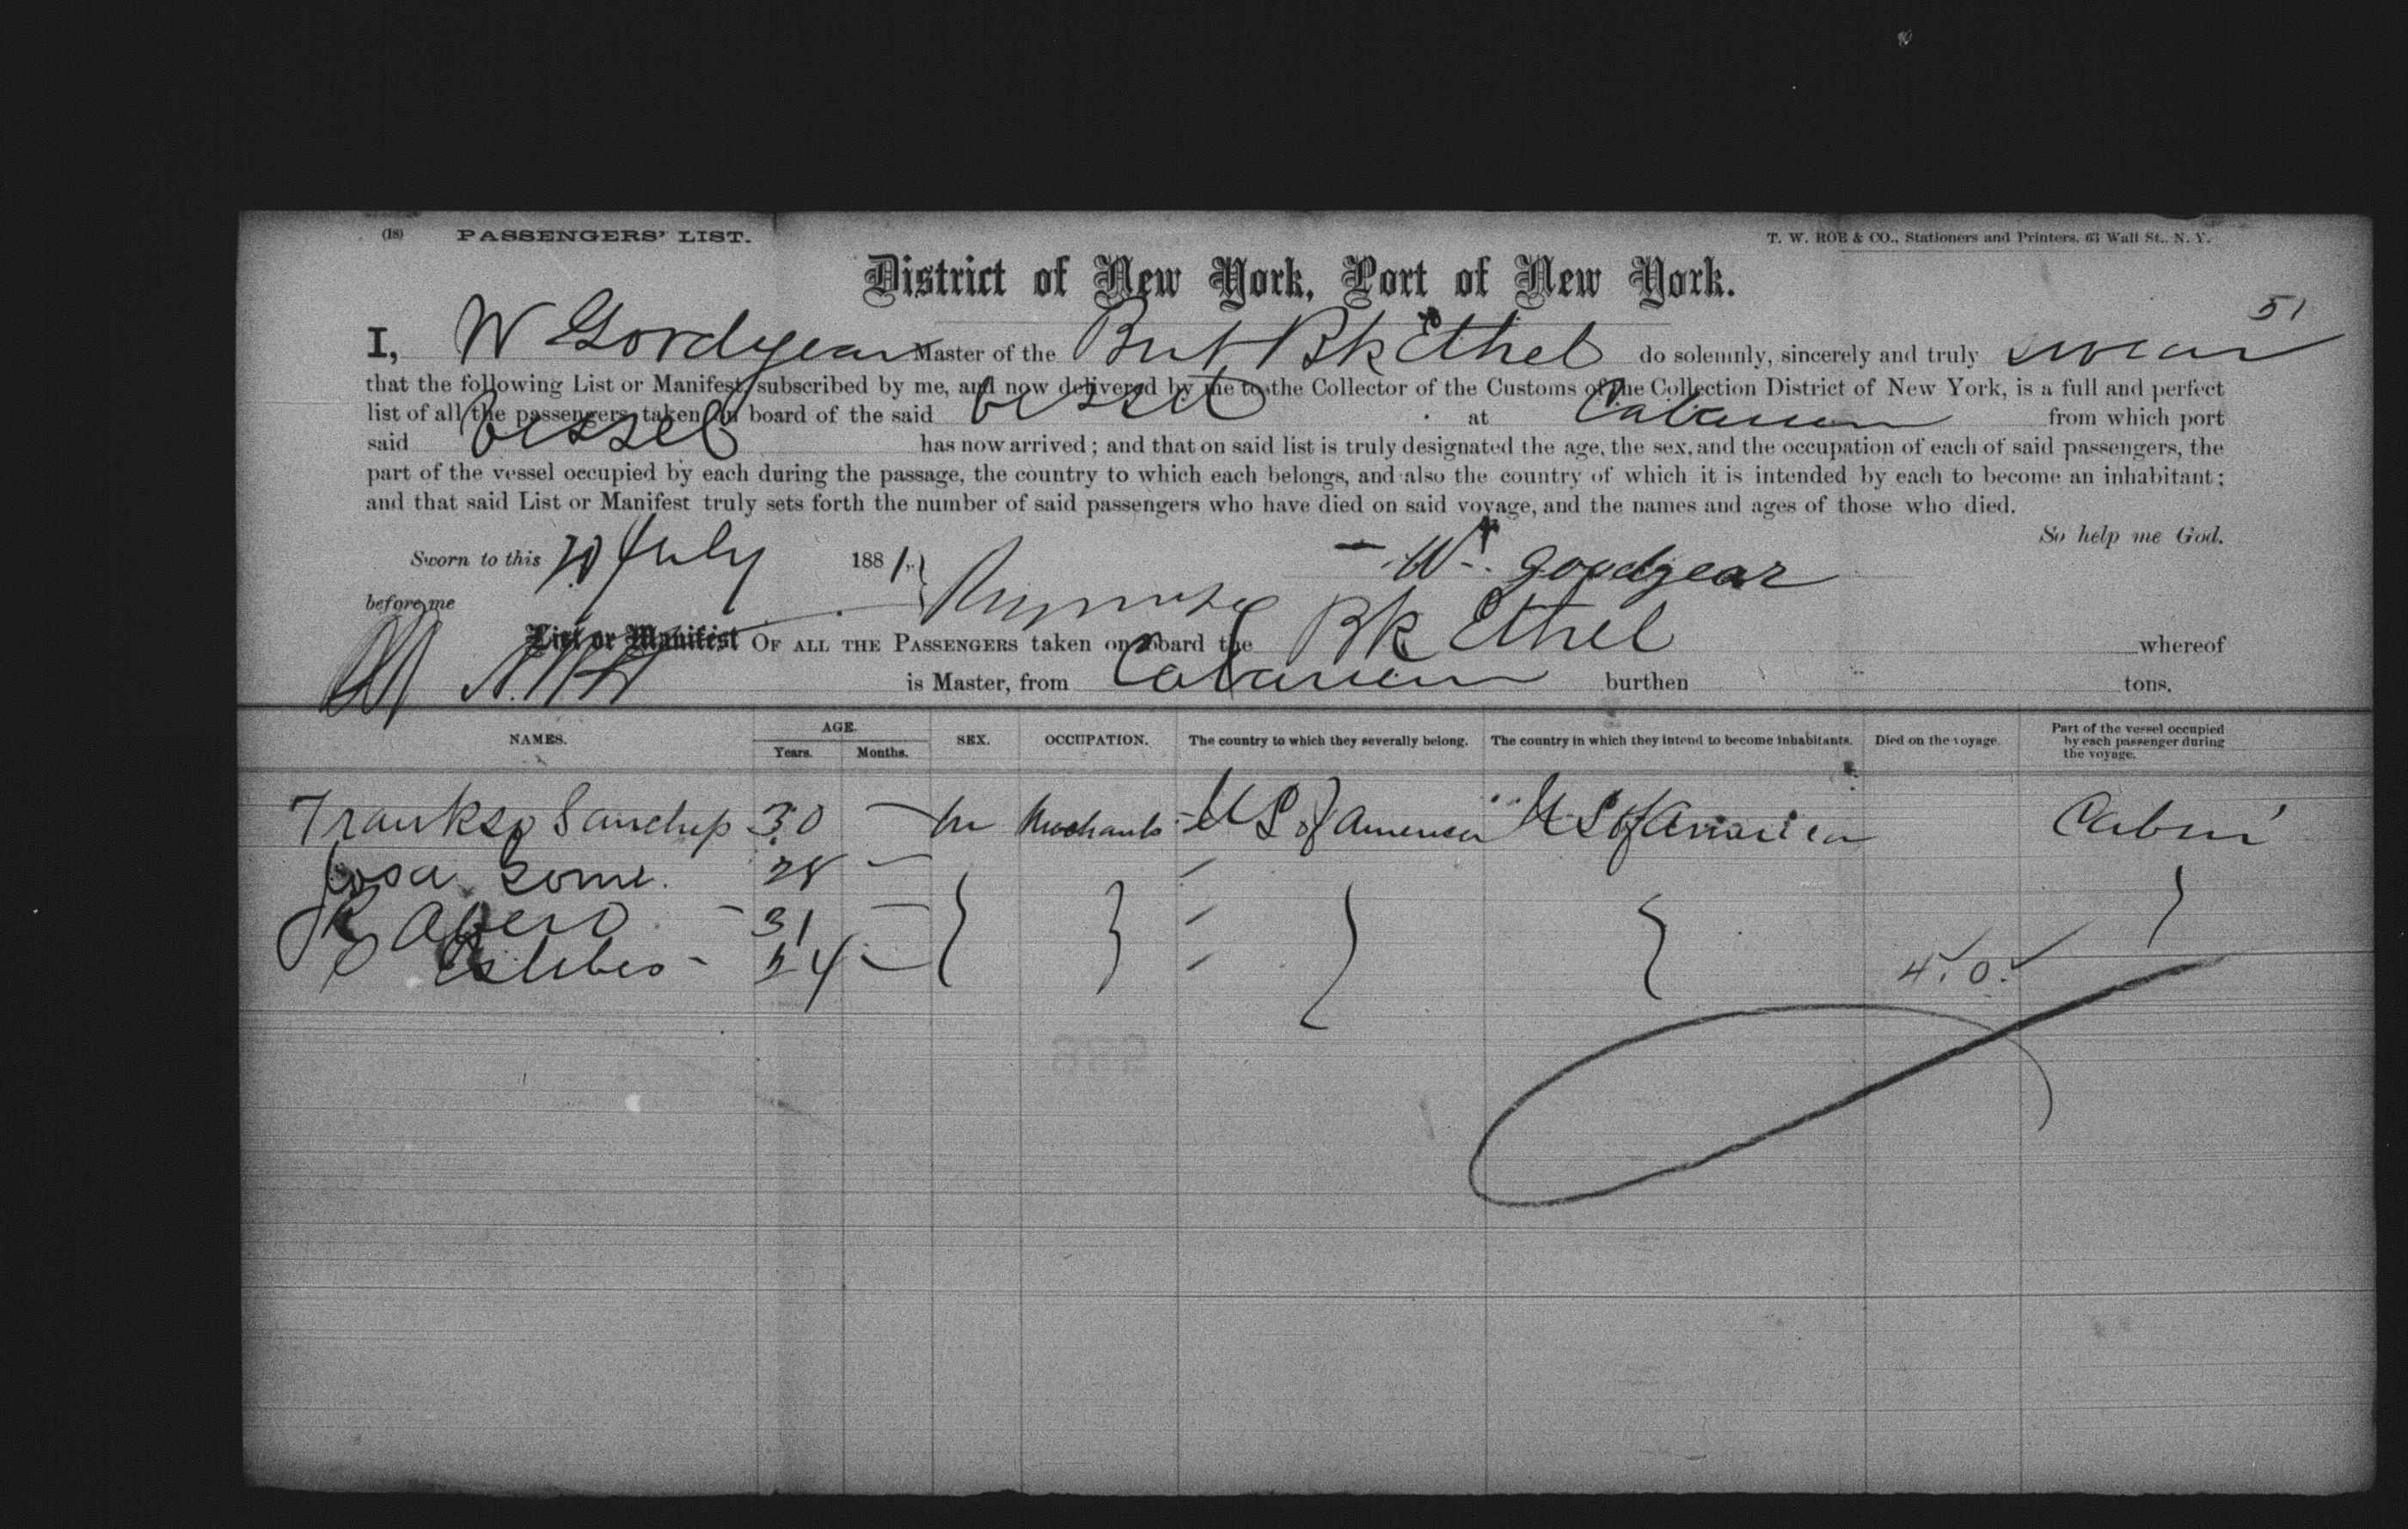 (18) PASSENGERS' LIST. T. W. ROE & CO., Stationers and Printers, 63 Wall St., N. Y.
District of New York, Port of New York.
51
I, W Gordyear Master of the Brit Bk Ethel do solemnly, sincerely and truly swear
that the following List or Manifest, subscribed by me, and now delivered by me to the Collector of the Customs of the Collection District of New York, is a full and perfect
list of all the passengers taken on board of the said vessel at from which port
said vessel has now arrived; and that on said list is truly designated the age, the sex, and the occupation of each of said passengers, the
part of the vessel occupied by each during the passage, the country to which each belongs, and also the country of which it is intended by each to become an inhabitant;
and that said List or Manifest truly sets forth the number of said passengers who have died on said voyage, and the names and ages of those who died.
So help me God.
Sworn to this July 1881, Wm. Goodgear
before me
List or Manifest OF ALL THE PASSENGERS taken on board the Bk Ethel whereof
is Master, from burthen tons.
NAMES. AGE. Years. Months. SEX. OCCUPATION. The country to which they severally belong. The country in which they intend to become inhabitants. Died on the voyage. Part of the vessel occupied by each passenger during the voyage.
30 — m Merchants U S of America U S of America Cabin
28 —
31 —
24 — 4. 0.